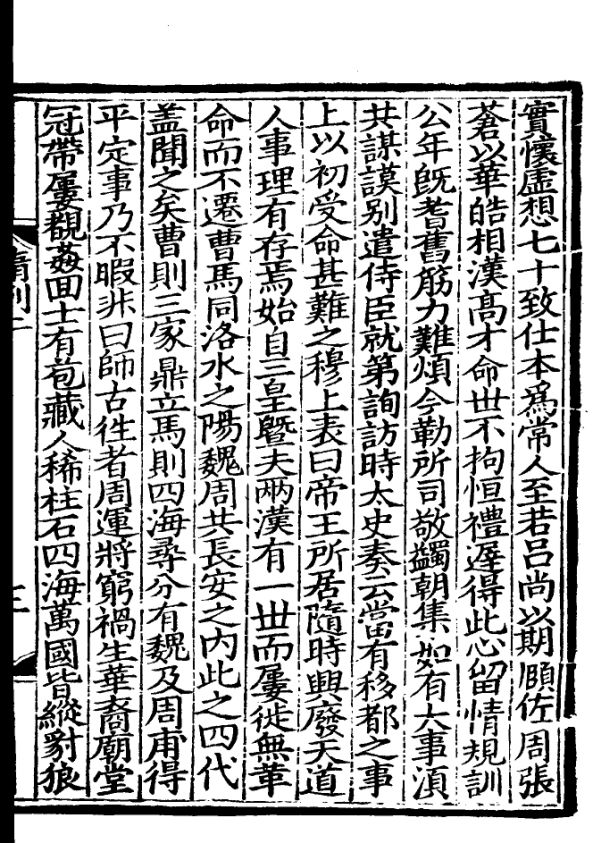 實懷虛想七十致仕本為常人至若吕尚以期頤佐周張
蒼以華皓相漢髙才命世不拘恒禮遲得此心留情規訓
公年旣耆舊筋力難煩今勒所司敬蠲朝集如有大事湏
共謀謨别遣侍臣就第詢訪時太史奏云當有移都之事
上以初受命甚難之穆上表曰帝王所居隨時興廢天道
人事理有存焉始自三皇曁夫兩漢有一世而屢徙無革
命而不遷曹馬同洛水之陽魏周共長安之内此之四代
盖聞之矣曹則三家鼎立馬則四海尋分有魏及周甫得
平定事乃不暇非曰師古徃者周運將窮禍生華裔廟堂
冠帶屢覩姦回士有苞藏人稀柱石四海萬國皆縱豺狼
隋列二
三